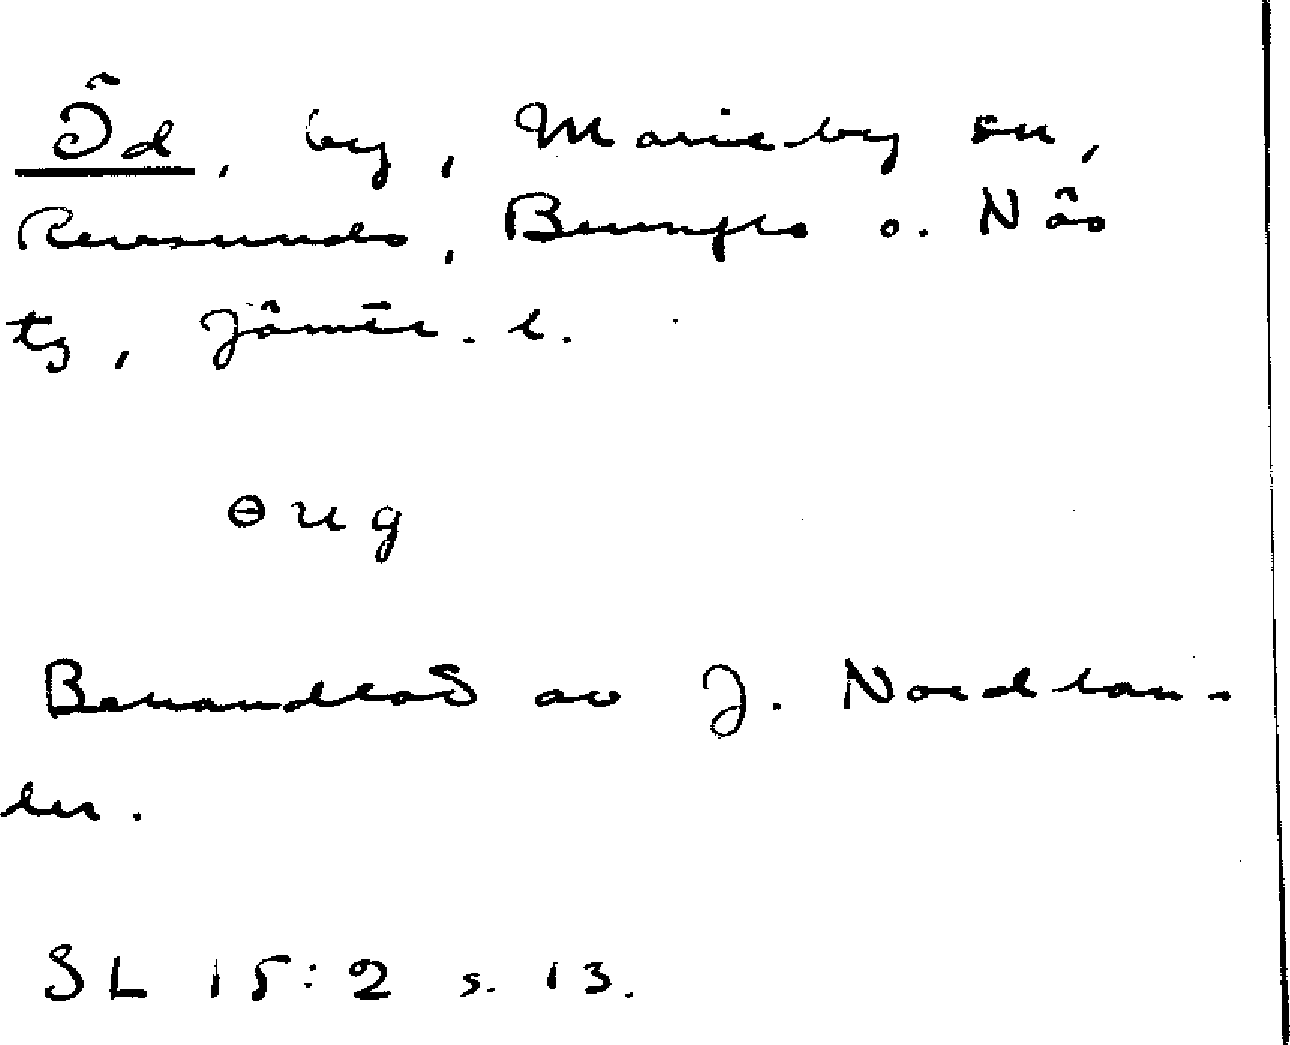 Öd, by, Marieby sn,
Revsunds, Brunflo o. Näs
tg, Jämtl. l.
ɵug
Behandlat av J. Nordlan-
der.
SL 15:2 s. 13.